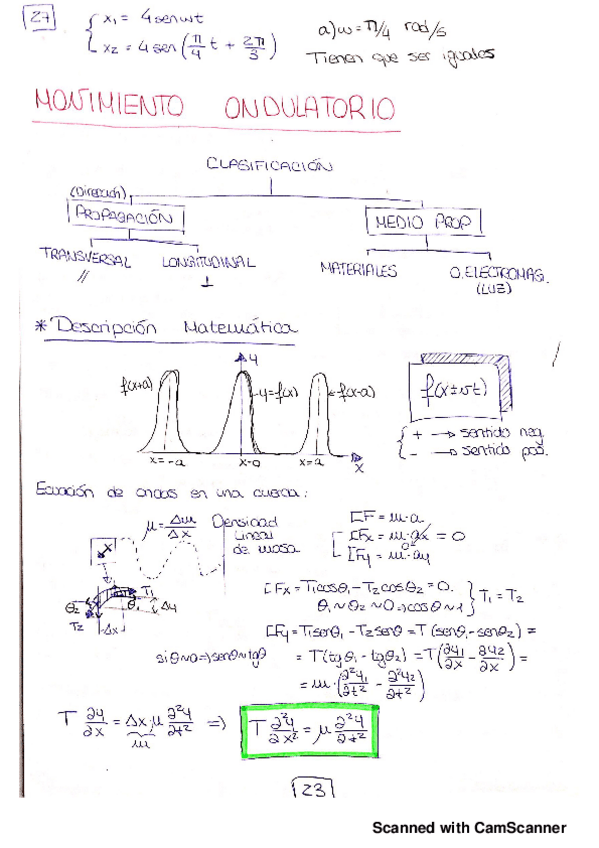 27 { x₁ = 4 sen ωt
x₂ = 4 sen (π/4 t + 2π/3)
a) ω = π/4 rad/s
Tienen que ser iguales
MOVIMIENTO ONDULATORIO
CLASIFICACIÓN
(Dirección)
PROPAGACIÓN
MEDIO PROP
TRANSVERSAL LONGITUDINAL MATERIALES O.ELECTROMAG.
// ⊥ (LUZ)
* Descripción Matemática
y
f(x+a) y=f(x) f(x-a)
x=-a x=0 x=a
x
f(x±vt)
{ + → sentido neg.
- → sentido pos.
Ecuación de ondas en una cuerda:
μ = Δm/Δx Densidad
lineal
de masa
ΣF = m·a
ΣFx = m·ax = 0
0
ΣFy = m·ay
T₁
θ₂ θ₁ Δy
T₂ Δx
ΣFx = T₁cosθ₁ - T₂cosθ₂ = 0.
θ₁ ~ θ₂ ~ 0 → cosθ ~ 1 } T₁ = T₂
ΣFy = T₁senθ₁ - T₂senθ = T(senθ₁ - senθ₂) =
si θ~0 ⇒ senθ ~ tgθ = T(tgθ₁ - tgθ₂) = T(∂y₁/∂x - ∂y₂/∂x) =
= m·(∂²y₁/∂t² - ∂²y₂/∂t²)
T ∂y/∂x = Δx·μ ∂²y/∂t² ⇒ T ∂²y/∂x² = μ ∂²y/∂t²
m
23
Scanned with CamScanner